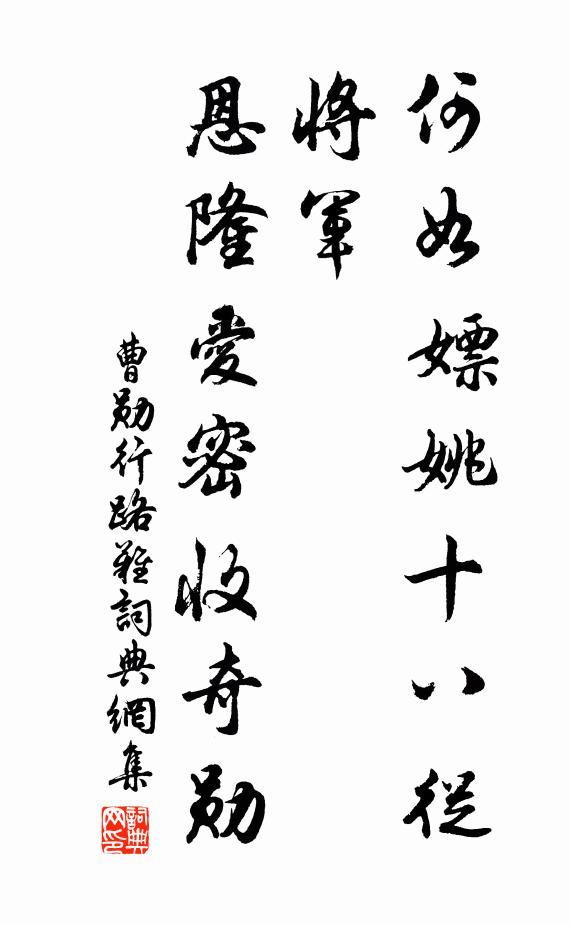 何如嫖姚十八從
將軍
恩隆愛密收奇勛
曹勛行路難詞典網集
詞典网印